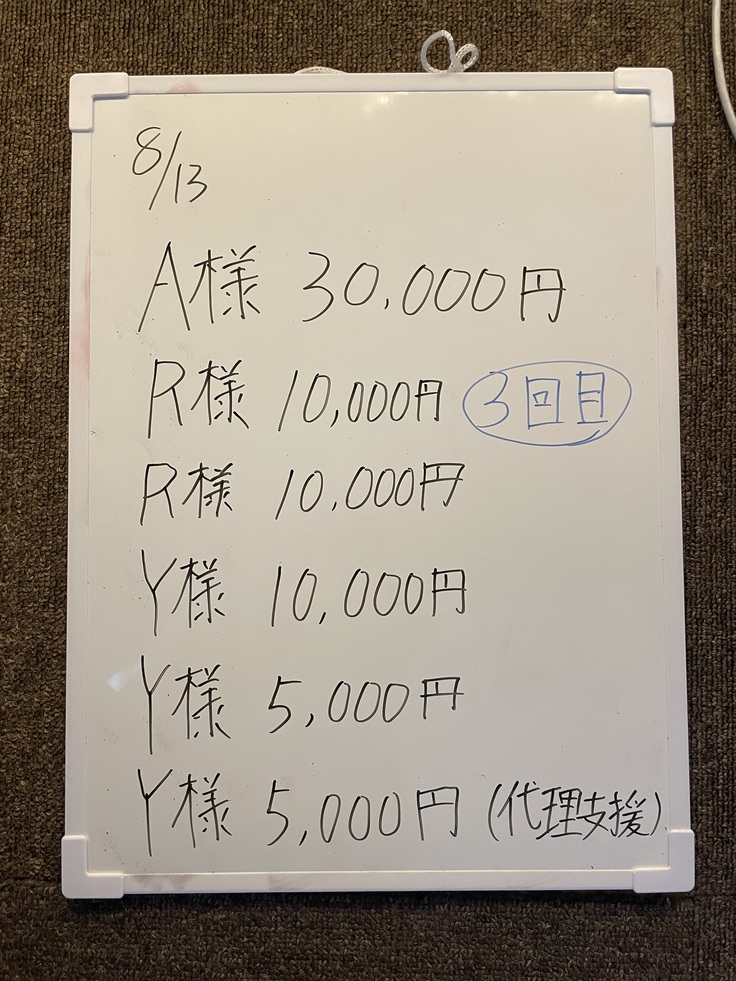 8/13
A様 30,000円
R様 10,000円 3回目
R様 10,000円
Y様 10,000円
Y様 5,000円
Y様 5,000円 (代理支援)